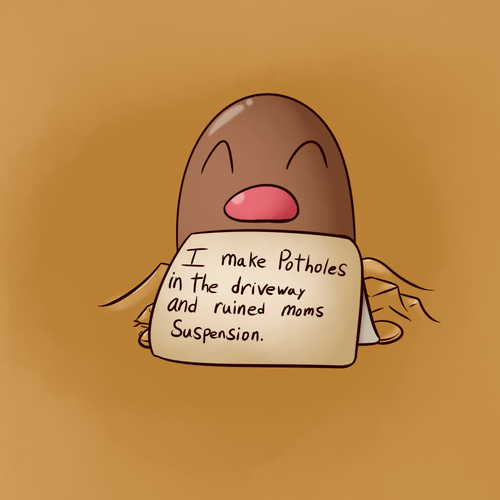 I make Potholes
in the driveway
and ruined moms
Suspension.